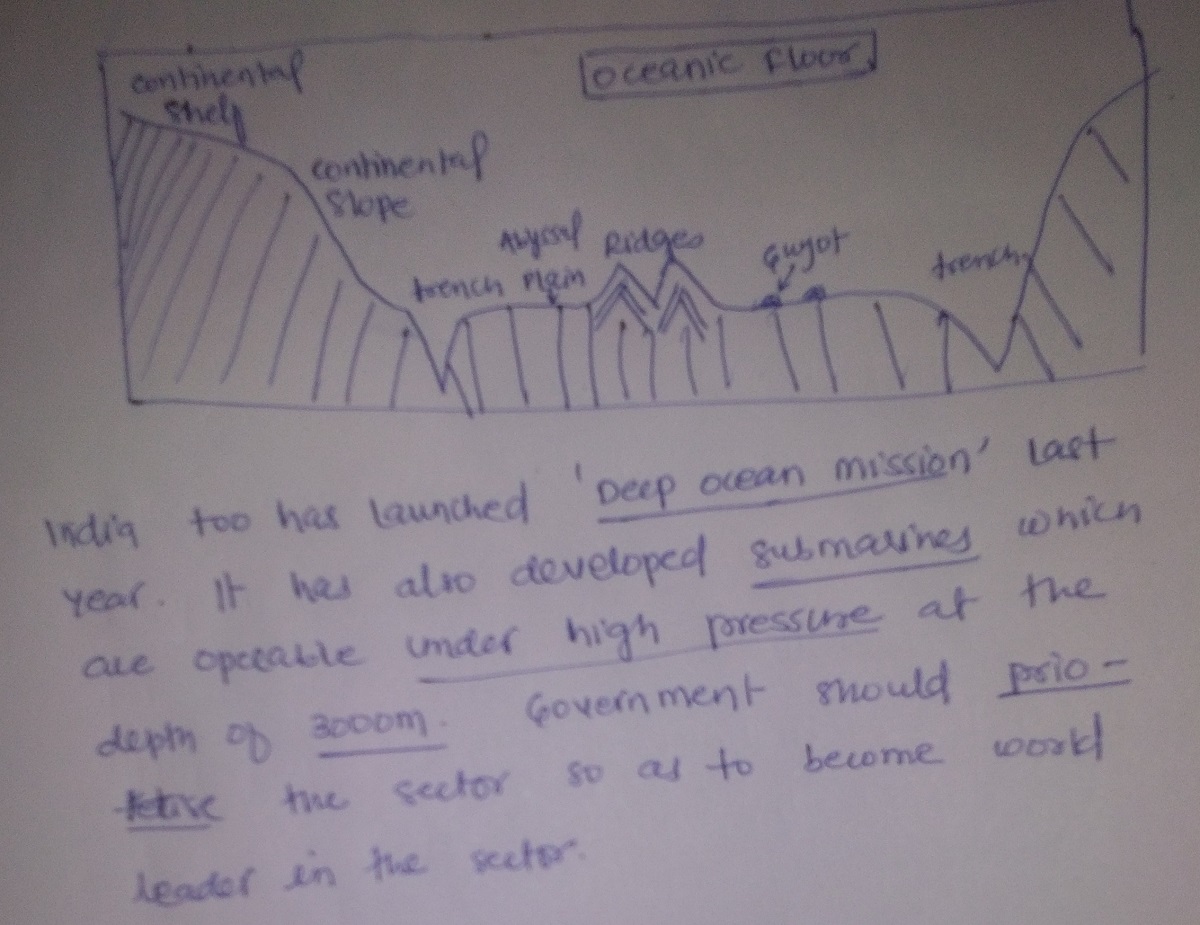 Oceanic Floor
continental
Shelf
continental
Slope
Abyssal
Plain
Ridges
Guyot
trench
trench
India too has launched 'Deep ocean mission' last
year. It has also developed submarines which
are operable under high pressure at the
depth of 3000m. Government should prio-
the sector so as to become world
leader in the sector.